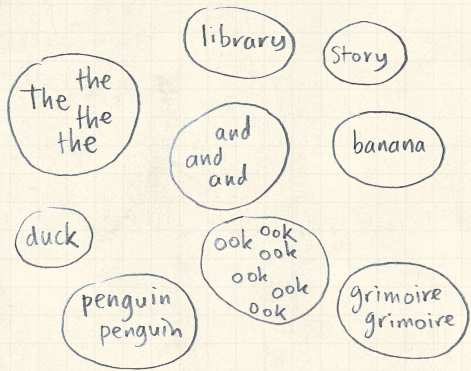 library
Story
The the
the
the
and
and
and
banana
duck
ook ook
ook
ook
ook
ook
penguin
penguin
grimoire
grimoire